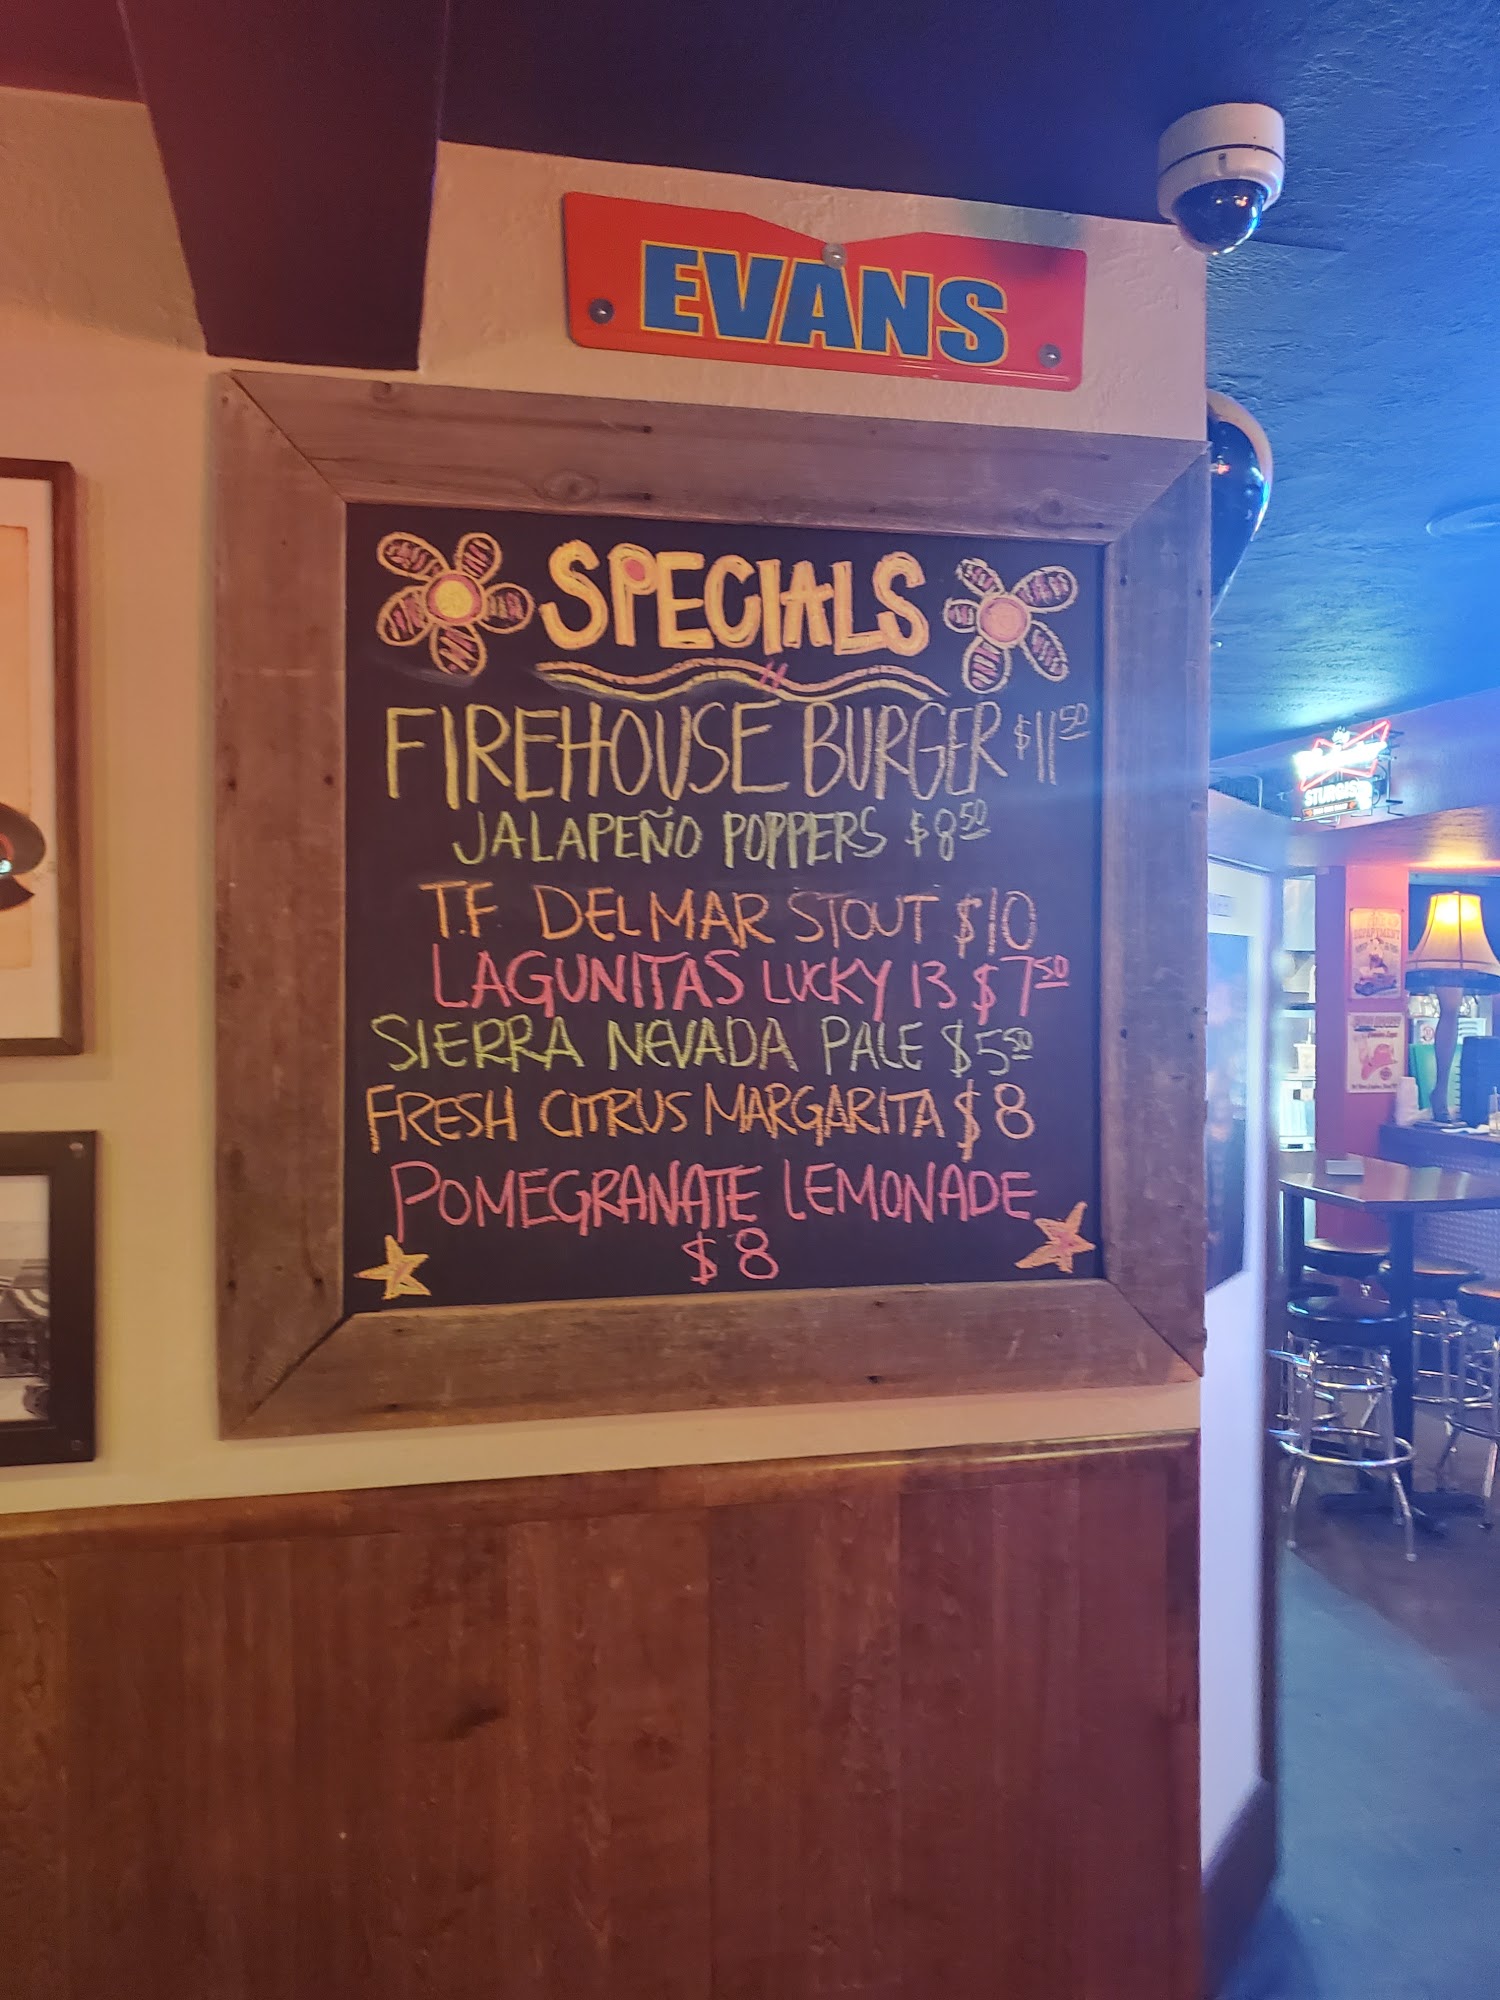 EVANS
SPECIALS
FIREHOUSE BURGER $11 50
JALAPEÑO POPPERS $8 50
T.F. DELMAR STOUT $10
LAGUNITAS LUCKY 13 $7 50
SIERRA NEVADA PALE $5 50
FRESH CITRUS MARGARITA $8
POMEGRANATE LEMONADE
$8
STURGIS
DEPARTMENT